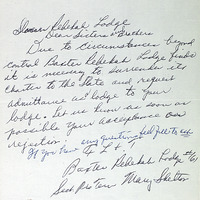 Rebekah Lodge
Dear Sisters & Brothers
Due to circumstances beyond
control Baxter Rebekah Lodge finds
it is necessary to surrender its
Charter to the State and request
admittance as lodge to your
lodge. Let us know as soon as
possible your acceptance or
rejection.
If you have any questions feel free to ask
F L & T
Baxter Rebekah Lodge #61
Mary Shelton